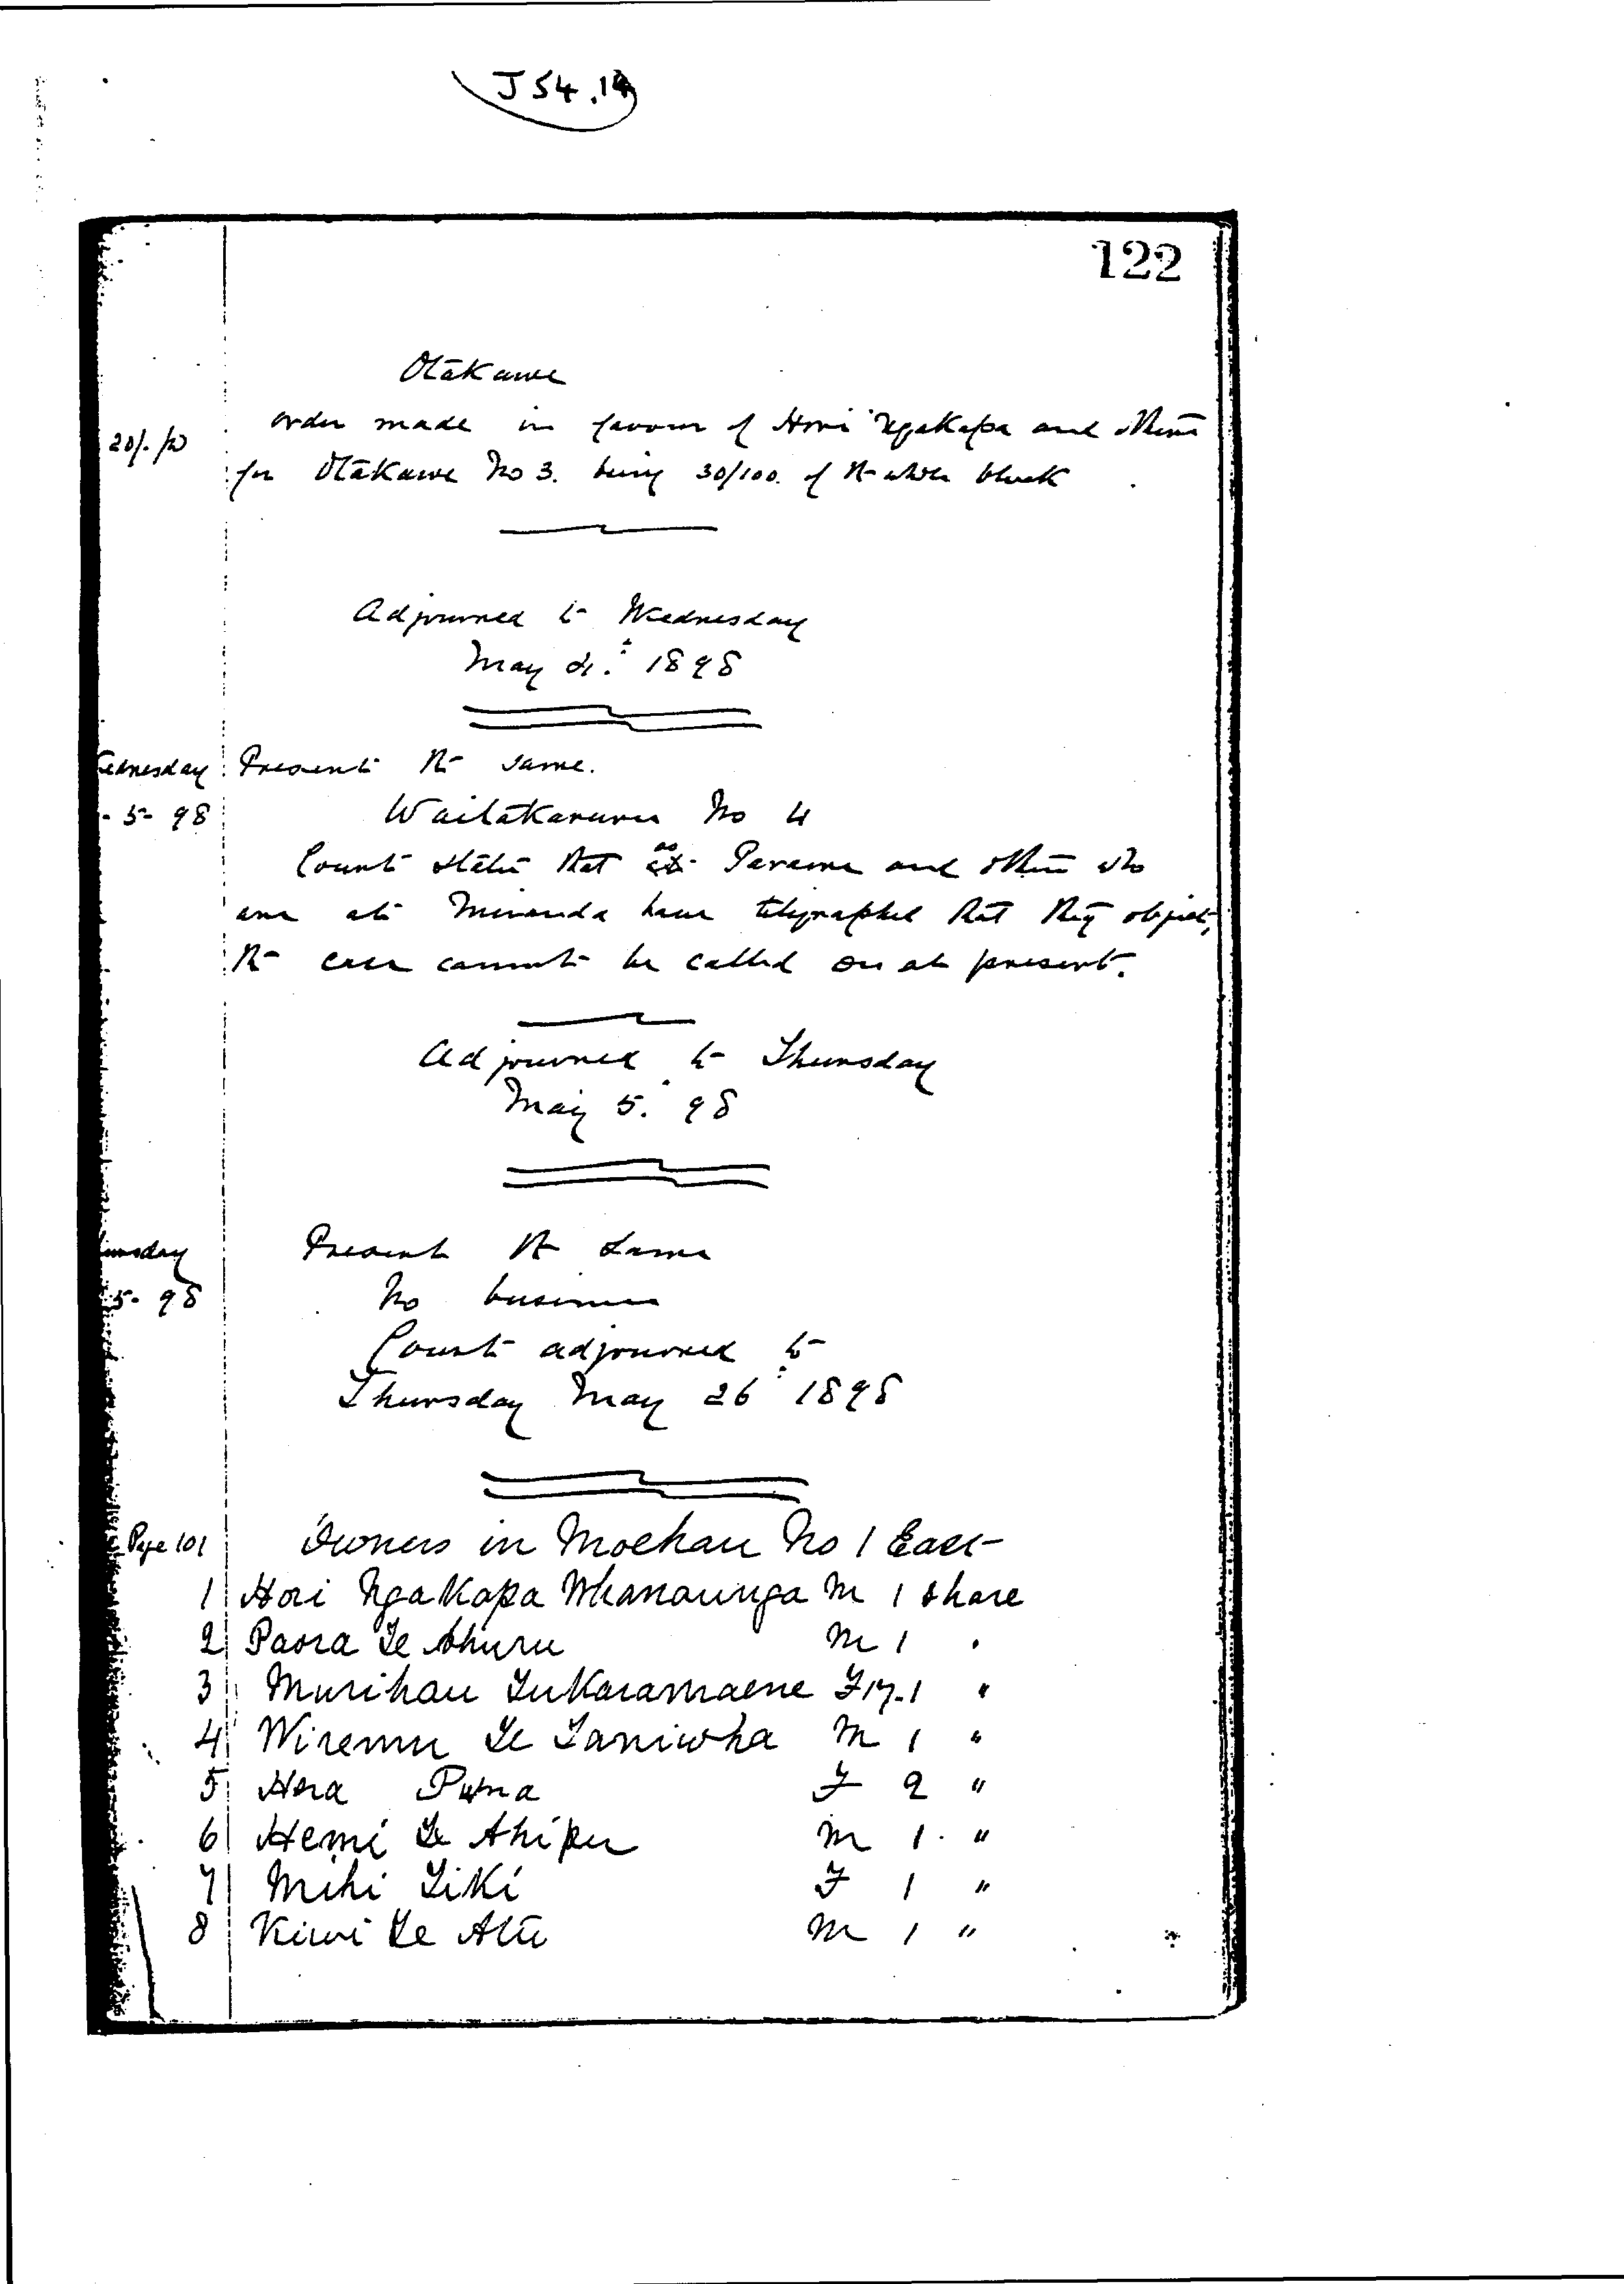 J 54.14
122
Otakawe
20/. pd
order made in favour of Hori Ngakapa and others
for Otakawe No 3. being 30/100. of the whole block
Adjourned to Wednesday
May 4. 1898
Wednesday Present the same.
- 5 - 98
Waitakaruru No 4
Court states that as Parame and others who
are at Miranda have telegraphed that they object,
the case cannot be called on at present.
Adjourned to Thursday
May 5. 98
Thursday Present the same
5 - 98 No business
Court adjourned to
Thursday May 26 1898
Page 101 Owners in Moehau No 1 East
1 Hori Ngakapa Whanaunga M 1 share
2 Paora Te Ahuru M 1 "
3 Murihau Tukaramaene F 1 "
4 Wiremu Te Taniwha M 1 "
5 Hera Puna F 2 "
6 Hemi Te Ahipu M 1 "
7 Mihi Tiki F 1 "
8 Kiwi Te Atu M 1 "